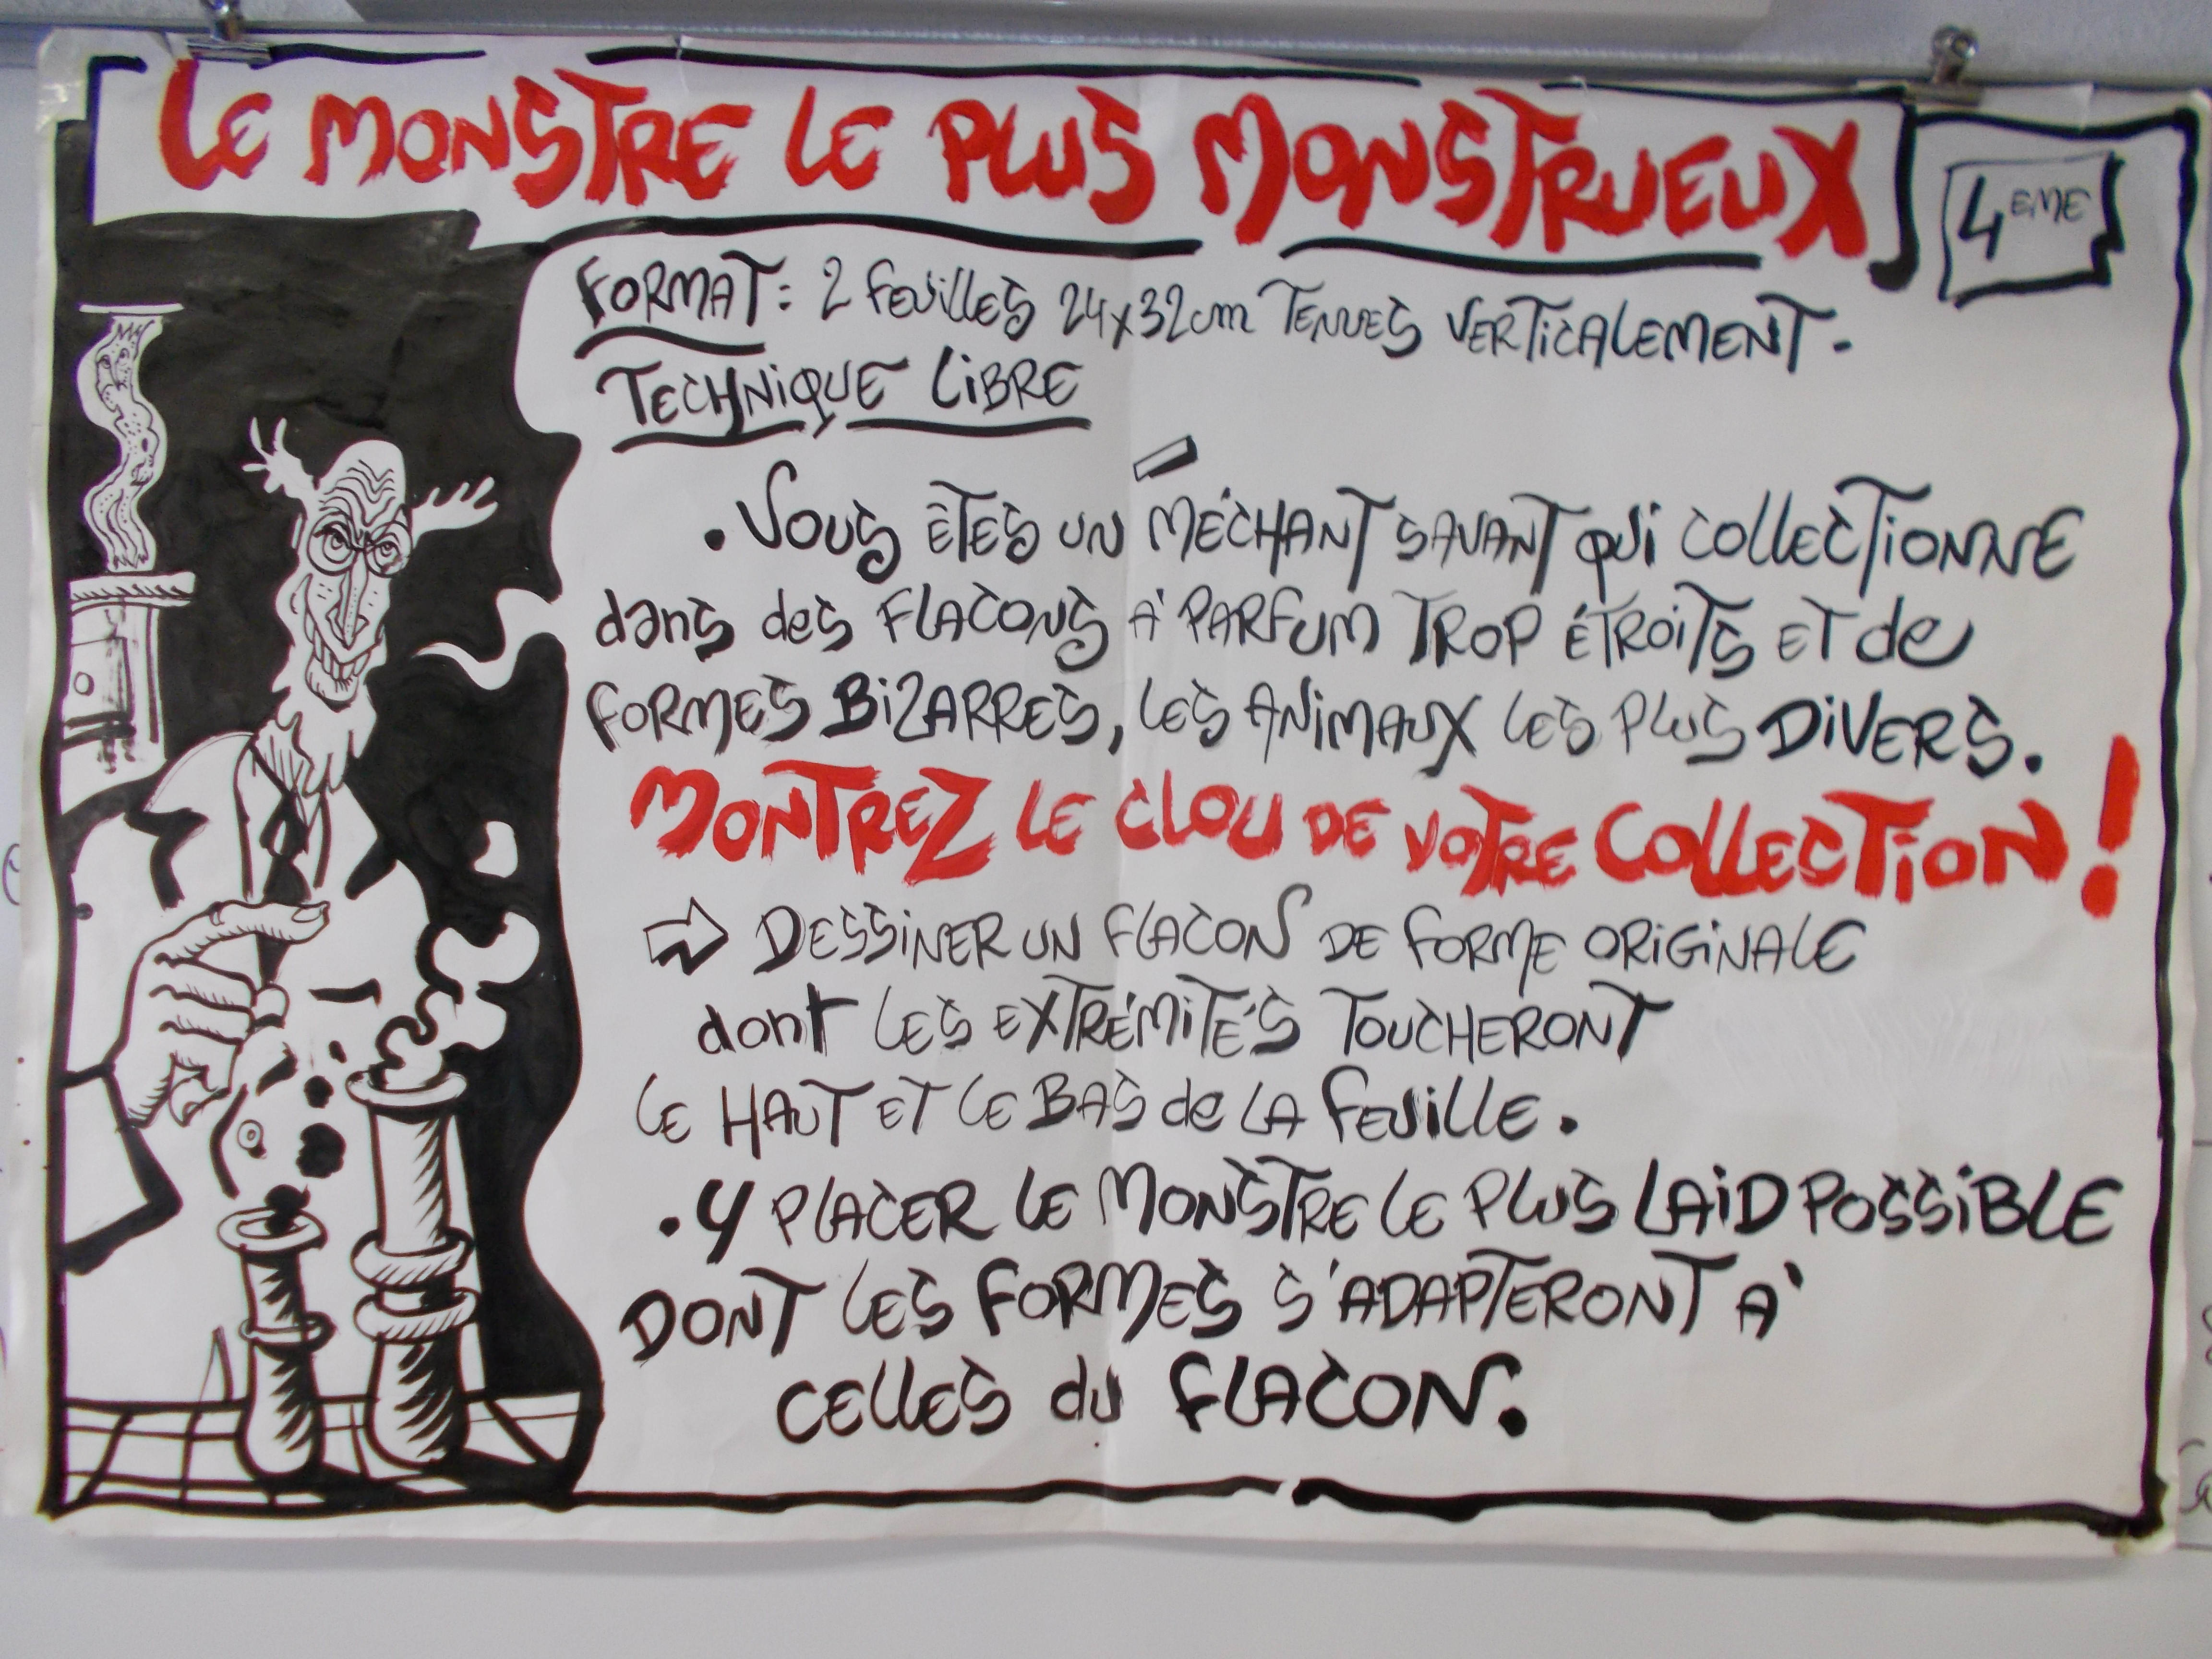 LE MONSTRE LE PLUS MONSTRUEUX
4EME
FORMAT: 2 feuilles 24x32cm TENUES VERTICALEMENT.
TECHNIQUE LIBRE
. VOUS ÊTES UN MÉCHANT SAVANT QUI COLLECTIONNE
dans des FLACONS À PARFUM TROP ÉTROITS ET de
FORMES BIZARRES, LES ANIMAUX LES PLUS DIVERS.
MONTREZ LE CLOU DE VOTRE COLLECTION!
⇨ DESSINER UN FLACON DE FORME ORIGINALE
dont LES EXTRÉMITÉS TOUCHERONT
LE HAUT ET LE BAS de LA feuille.
. Y PLACER LE MONSTRE LE PLUS LAID POSSIBLE
DONT LES FORMES S'ADAPTERONT À
CELLES du FLACON.